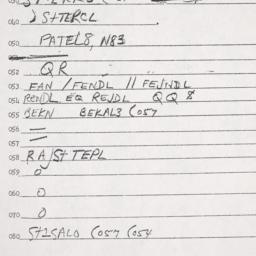 040 S+TERCL
050 PATEL8, N83
052 QR
053 FAN / FENDL // FEJNDL
054 RENDL EQ REJDL QQ 8
055 BEKN BEKAL3 (057
056 —
057 =
058 RAJS+ TEPL
059 0
060 0
070 0
080 S+1SALO (057 (054